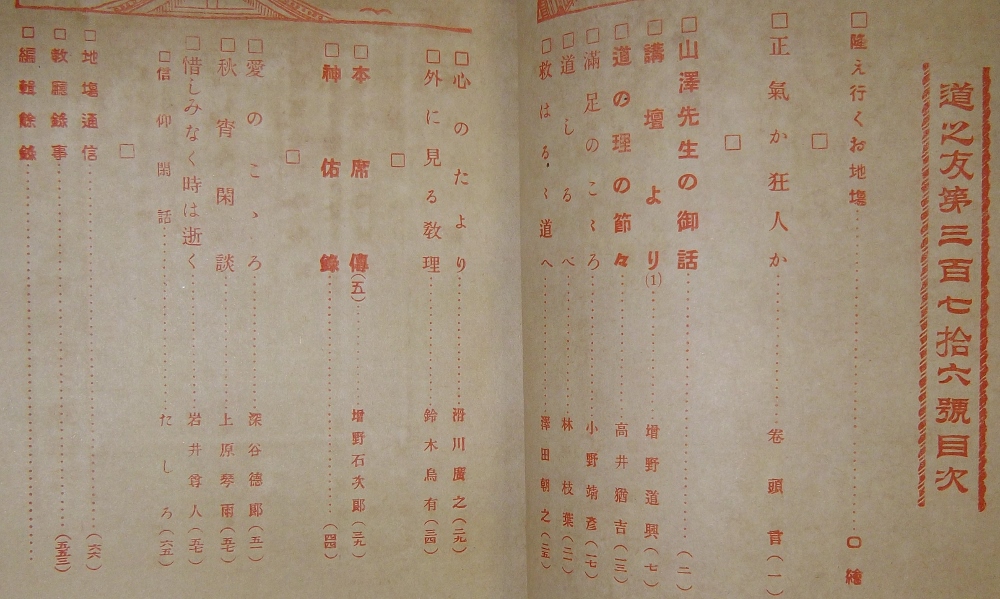 道之友第三百七拾六號目次
□隆え行くお地場……口繪
□正氣か狂人か……卷頭言(一)
□山澤先生の御話……(二)
□講壇より(1)……增野道興(七)
□道の理の節々……高井猶吉(一三)
□滿足のこゝろ……小野靖彥(一七)
□道しるべ……林枝葉(二一)
□救はるゝ道へ……澤田朝之(二五)
□心のたより……滑川廣之(二九)
□外に見る敎理……鈴木烏有(三四)
□本席傳(五)……增野石次郞(三九)
□神佑錄……(四四)
□愛のこゝろ……深谷德郞(五一)
□秋宵閑談……上原琴雨(五七)
□惜しみなく時は逝く……岩井尊人(五七)
□信仰閑話……たしろ(六五)
□地場通信……(六六)
□敎廳錄事……(五五三)
□編輯餘錄……